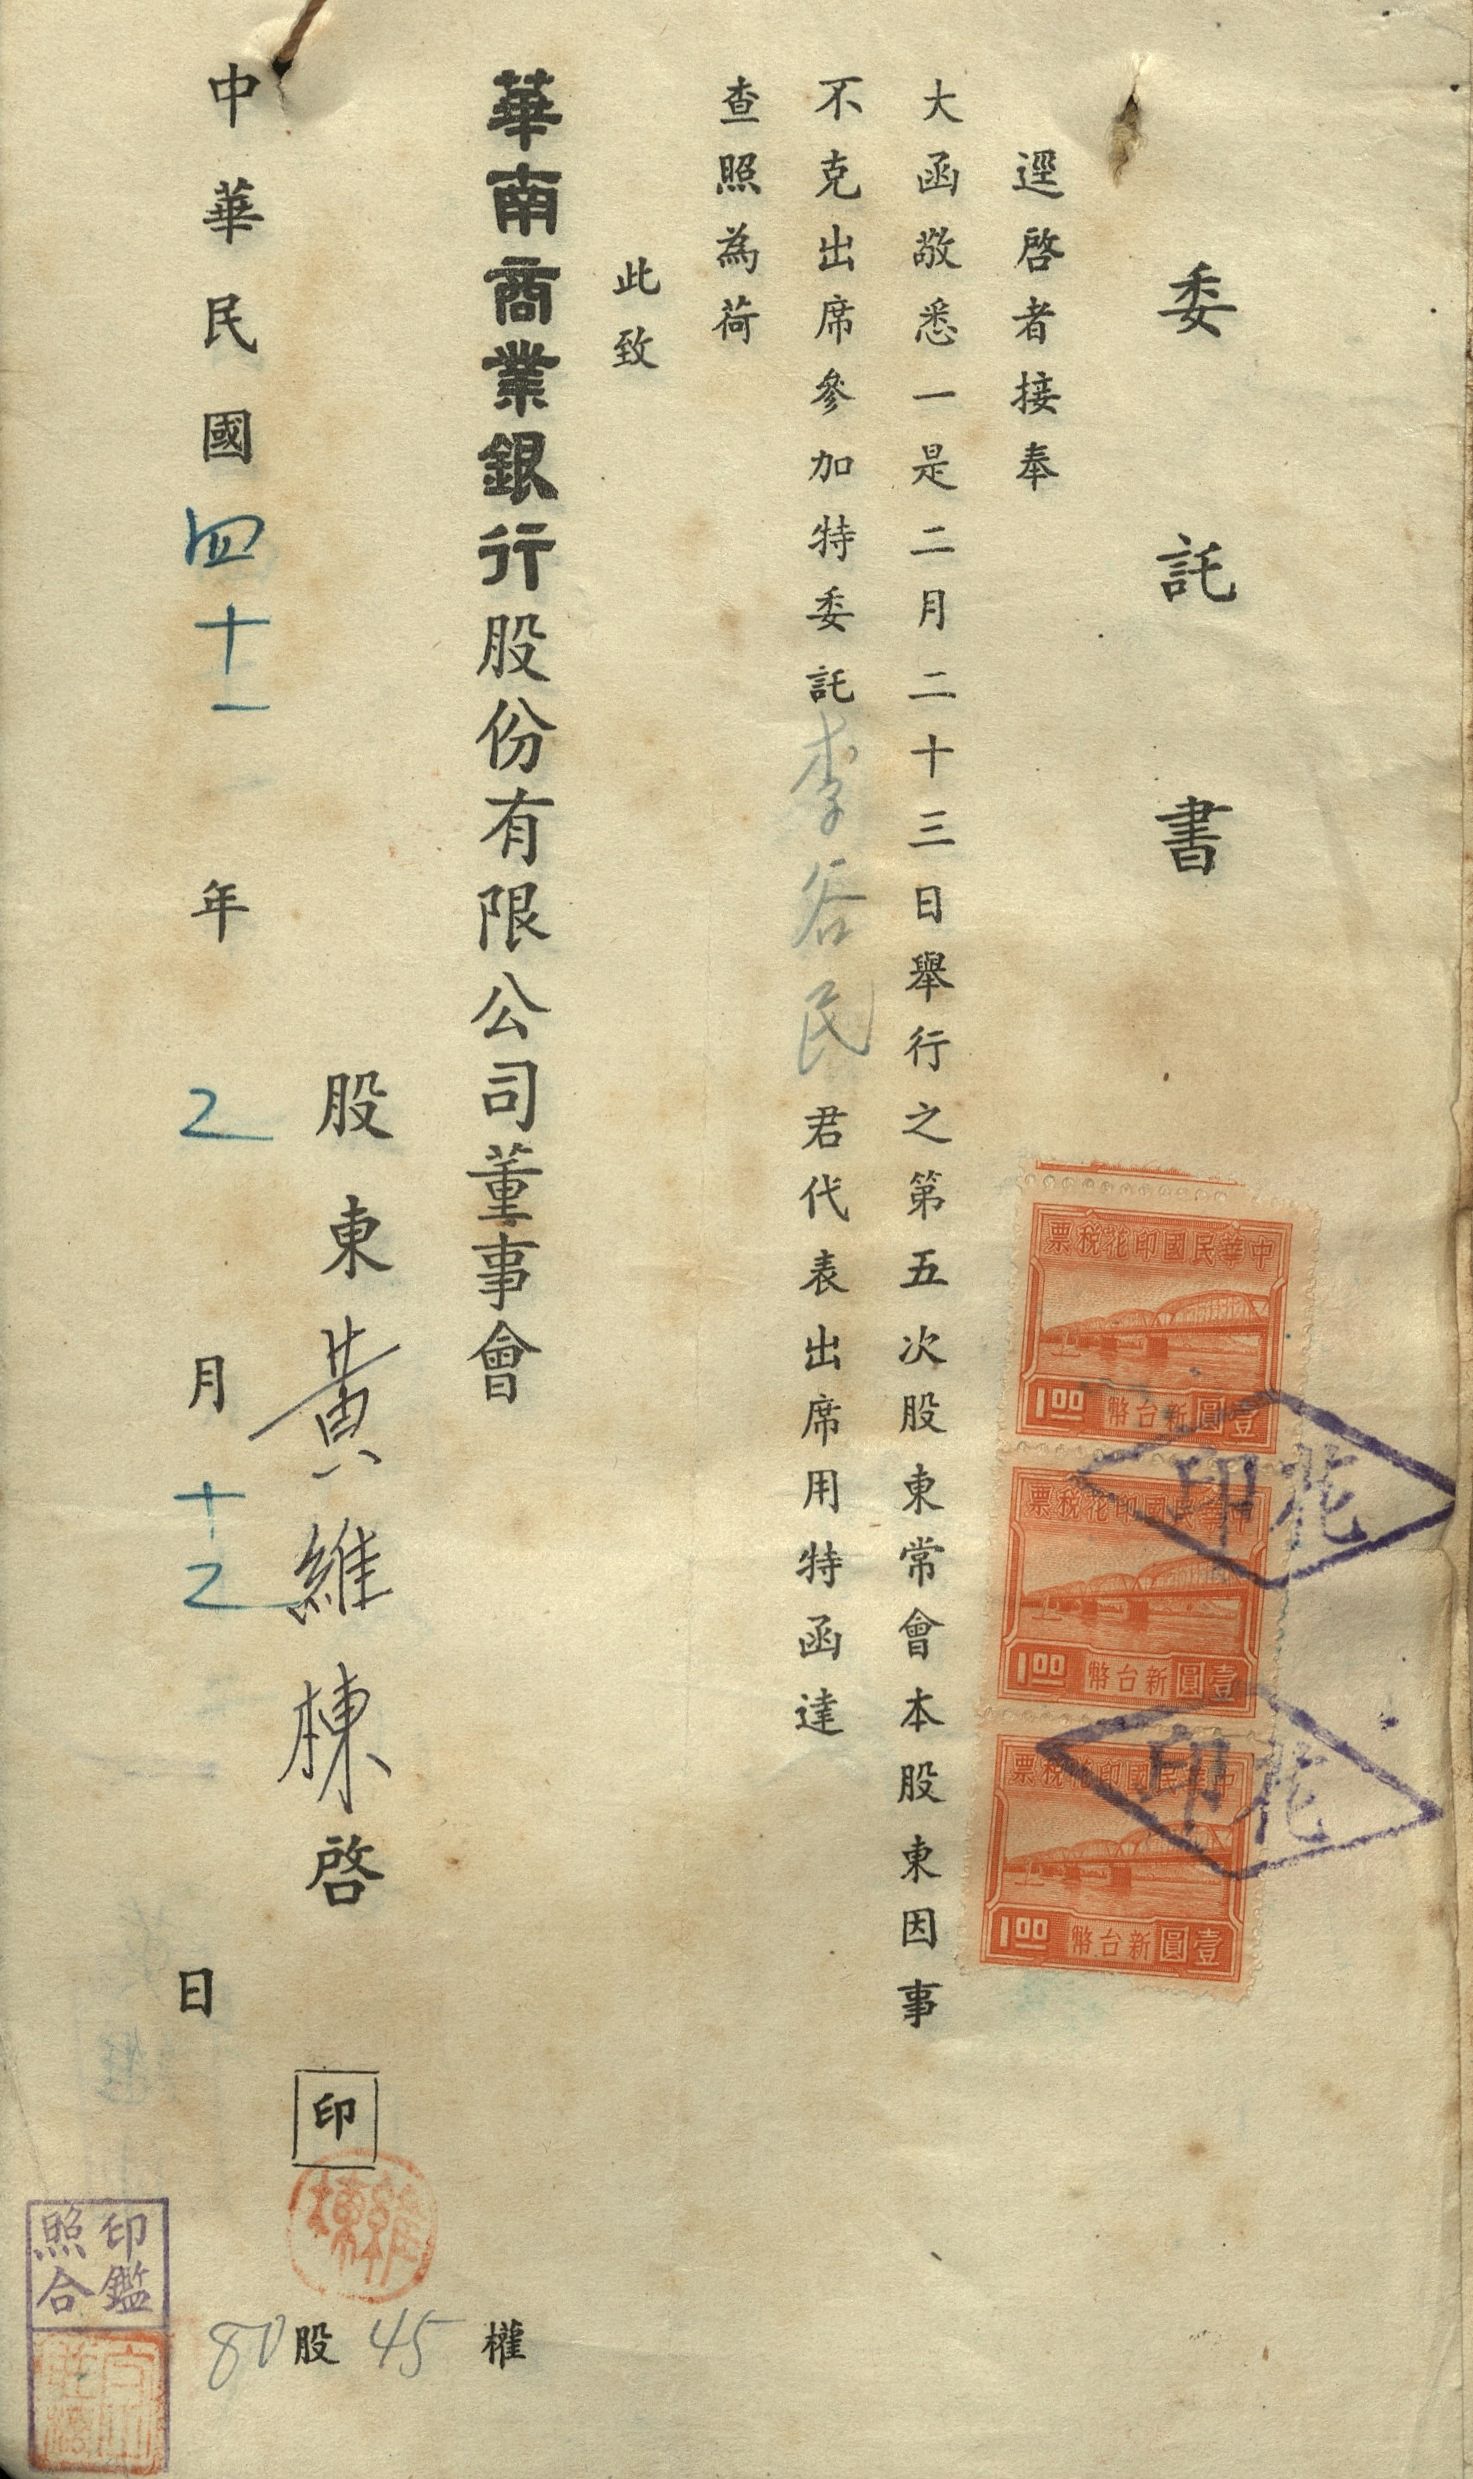 委託書
逕啓者接奉
大函敬悉一是二月二十三日舉行之第五次股東常會本股東因事
不克出席參加特委託李谷民君代表出席用特函達
查照為荷
此致
華南商業銀行股份有限公司董事會
股東黃維棟啓 印
維棟
中華民國四十一年2月十2日
80股45權
印鑑照合
中華民國印花稅票
1.00 壹圓新台幣
中華民國印花稅票
1.00 壹圓新台幣
中華民國印花稅票
1.00 壹圓新台幣
花印
花印